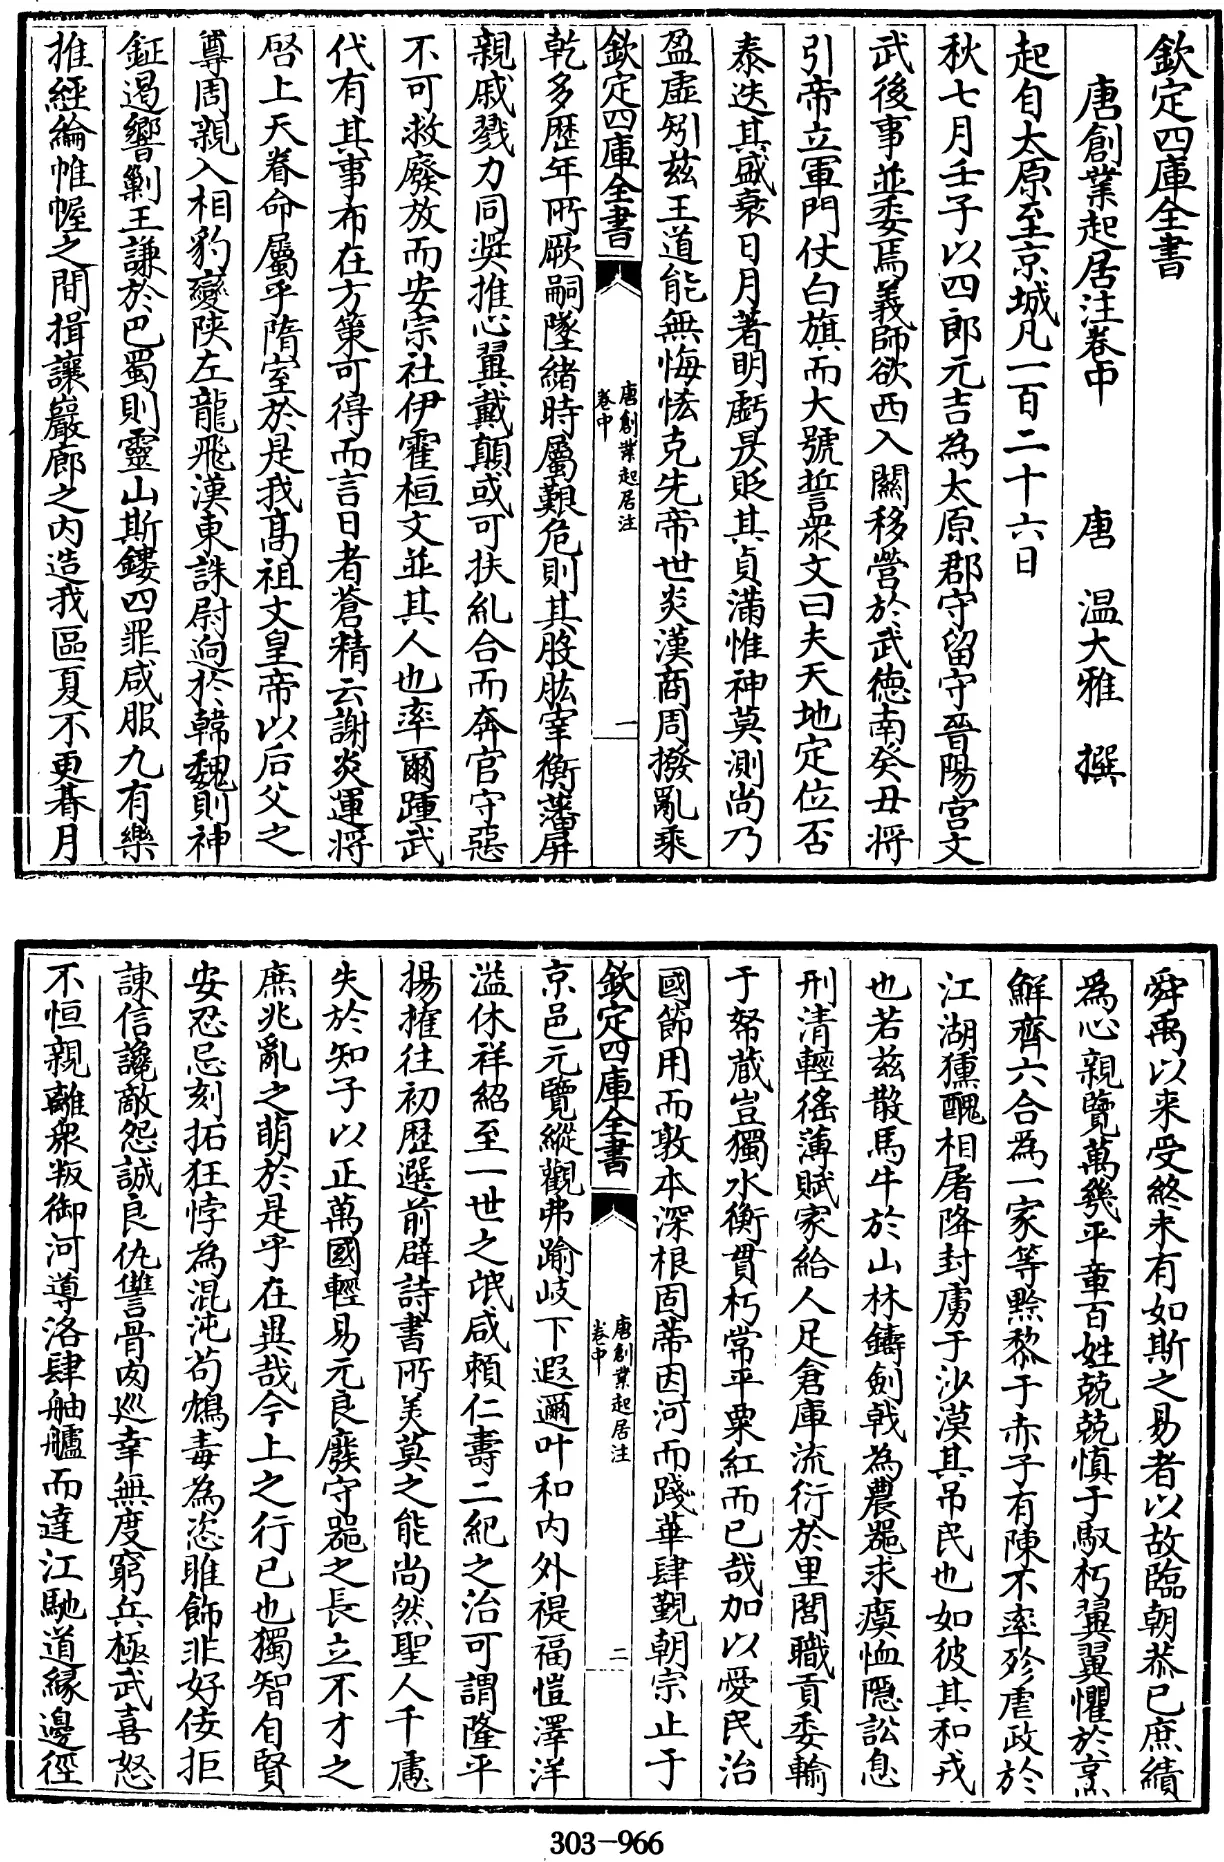 欽定四庫全書
唐創業起居注卷中　唐　温大雅　撰
起自太原至京城凡一百二十六日
秋七月壬子以四郎元吉為太原郡守留守晉陽宫文
武後事並委焉義師欲西入關移營於武徳南癸丑将
引帝立軍門仗白旗而大號誓衆文曰夫天地定位否
泰迭其盛衰日月著明虧昃貶其貞滿惟神莫測尚乃
盈虚矧兹王道能無悔恡克先帝世炎漢商周撥亂乘
欽定四庫全書
唐創業起居注
卷中
一
乾多歷年所厥嗣墜緒時屬艱危則其股肱宰衡藩屏
親戚戮力同奨推心翼戴顛或可扶糺合而奔官守惡
不可救廢放而安宗社伊霍桓文並其人也率爾踵武
代有其事布在方策可得而言日者蒼精云謝炎運将
啓上天眷命屬乎隋室於是我髙祖文皇帝以后父之
尊周親入相豹變陜左龍飛漢東誅尉逈於韓魏則神
鉦遏響剿王謙於巴蜀則靈山斯鏤四罪咸服九有樂
推經綸帷幄之間揖讓巖廊之内造我區夏不更朞月
舜禹以来受終未有如斯之易者以故臨朝恭已庶績
為心親覽萬幾平章百姓兢兢慎于馭朽翼翼懼於烹
鮮齊六合為一家等黔黎于赤子有陳不率殄虐政於
江湖獯醜相屠降封虜于沙漠其吊民也如彼其和戎
也若兹散馬牛於山林鑄劍戟為農器求瘼恤隠訟息
刑清輕徭薄賦家給人足倉庫流衍於里閭職貢委輸
于帑蔵豈獨水衡貫朽常平粟紅而已哉加以愛民治
國節用而敦本深根固蒂因河而踐華肆覲朝宗止于
欽定四庫全書
唐創業起居注
卷中
二
京邑元覽縱觀弗踰岐下遐邇叶和内外禔福愷澤洋
溢休祥紹至一世之氓咸頼仁壽二紀之治可謂隆平
揚搉往初歴選前辟詩書所美莫之能尚然聖人千慮
失於知子以正萬國輕易元良廢守器之長立不才之
庶兆亂之萌於是乎在異哉今上之行已也獨智自賢
安忍忌刻拓狂悖為混沌茍鴆毒為恣睢飾非好佞拒
諫信讒敵怨誠良仇讐骨肉巡幸無度窮兵極武喜怒
不恒親離衆叛御河導洛肆舳艫而達江馳道緣邊徑
303-966